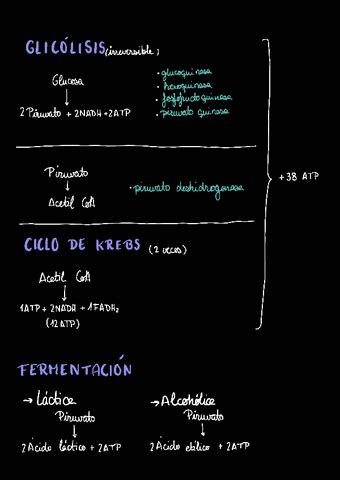 GLICÓLISIS (irreversible)
Glucosa
↓
2 Piruvato + 2NADH + 2ATP
· glucoquinasa
· hexoquinasa
· fosfofructoquinasa
· piruvato quinasa
Piruvato
↓
Acetil CoA
· piruvato deshidrogenasa
+38 ATP
CICLO DE KREBS (2 veces)
Acetil CoA
↓
1ATP + 2NADH + 1FADH₂
(12 ATP)
FERMENTACIÓN
→ Láctica
Piruvato
↓
2 Ácido láctico + 2 ATP
→ Alcohólica
Piruvato
↓
2 Ácido etílico + 2 ATP